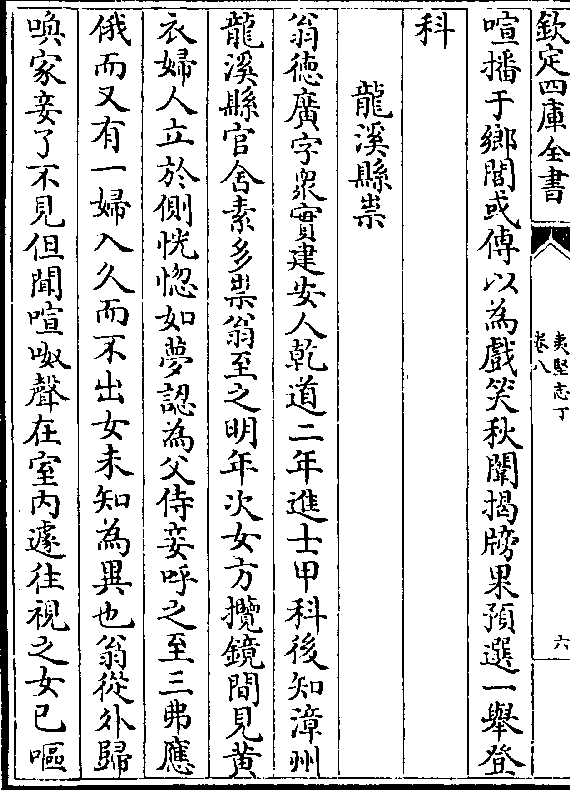 欽定四庫全書
夷堅志丁
卷八
六
喧播于鄉閭或傳以為戲笑秋闈揭牓果預選一舉登
科
龍溪縣祟
翁徳廣字衆實建安人乾道二年進士甲科後知漳州
龍溪縣官舍素多祟翁至之明年次女方攬鏡間見黄
衣婦人立於側恍惚如夢認為父侍妾呼之至三弗應
俄而又有一婦入久而不出女未知為異也翁從外歸
喚家妾了不見但聞喧呶聲在室内遽往視之女已嘔